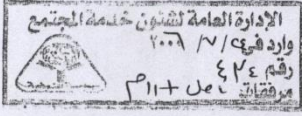 الإدارة العامة لشئون خدمة المجتمع
وارد في / ٧ / ٢٠٠٦
رقم ٤٢٤
مرفقات أصل + ١١م